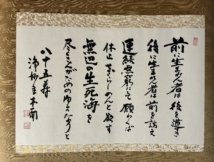 前に生まれん者は後を導き
後に生まれん者は前を訪え
連続無窮にして願わくば
休止せざらしめんと欲す
無辺の生死海を
尽さんがためのゆえなりと
八十五寿